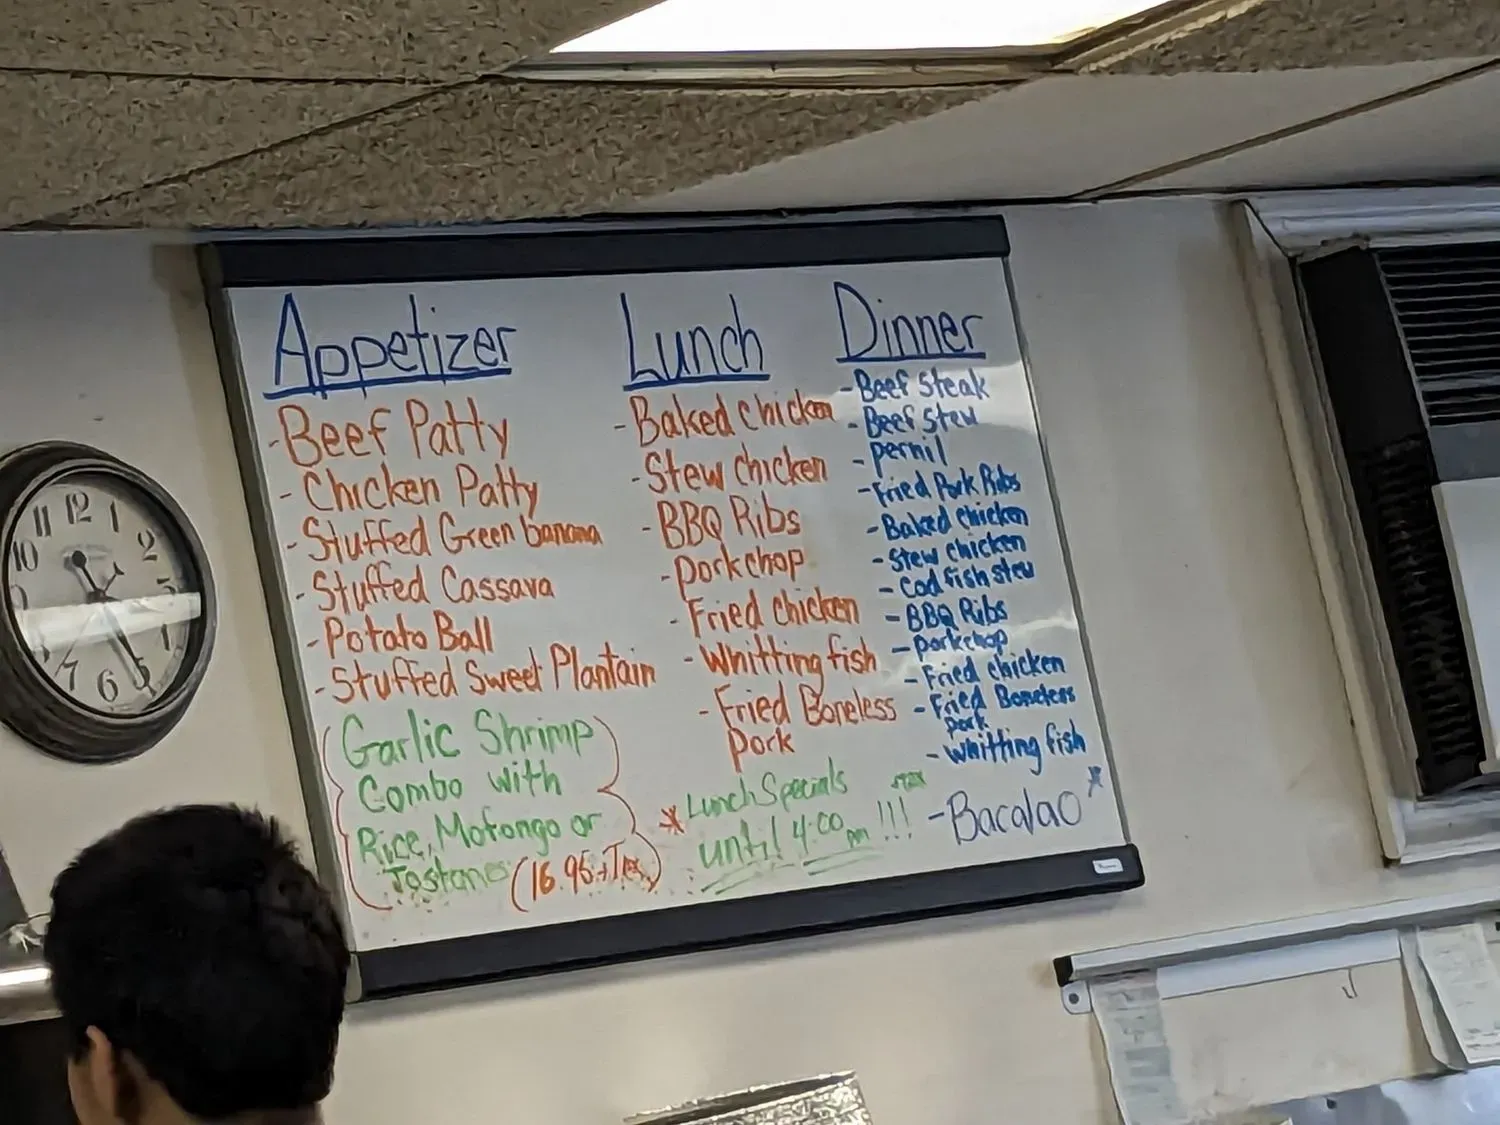 Appetizer
-Beef Patty
-Chicken Patty
-Stuffed Green banana
-Stuffed Cassava
-Potato Ball
-Stuffed Sweet Plantain
(Garlic Shrimp)
Combo with
Rice, Mofongo or
Tostones (16.95+Tax)
Lunch
-Baked chicken
-Stew chicken
-BBQ Ribs
-porkchop
-Fried chicken
-Whitting fish
-Fried Boneless
Pork
*Lunch Specials
until 4:00 pm !!!
Dinner
-Beef steak
-Beef stew
-pernil
-Fried Pork Ribs
-Baked chicken
-Stew chicken
-Cod fish stew
-BBQ Ribs
-porkchop
-Fried chicken
-Fried Boneless
pork
-Whitting fish
-Bacalao*
12
1
2
4
5
6
7
10
11